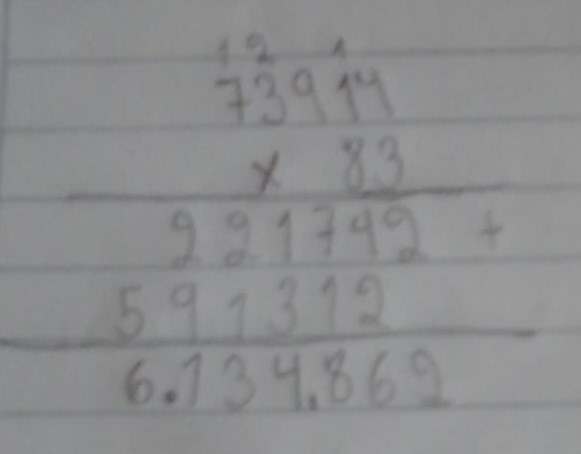 12 1
73914
x 83
221742 +
591312
6.134.862